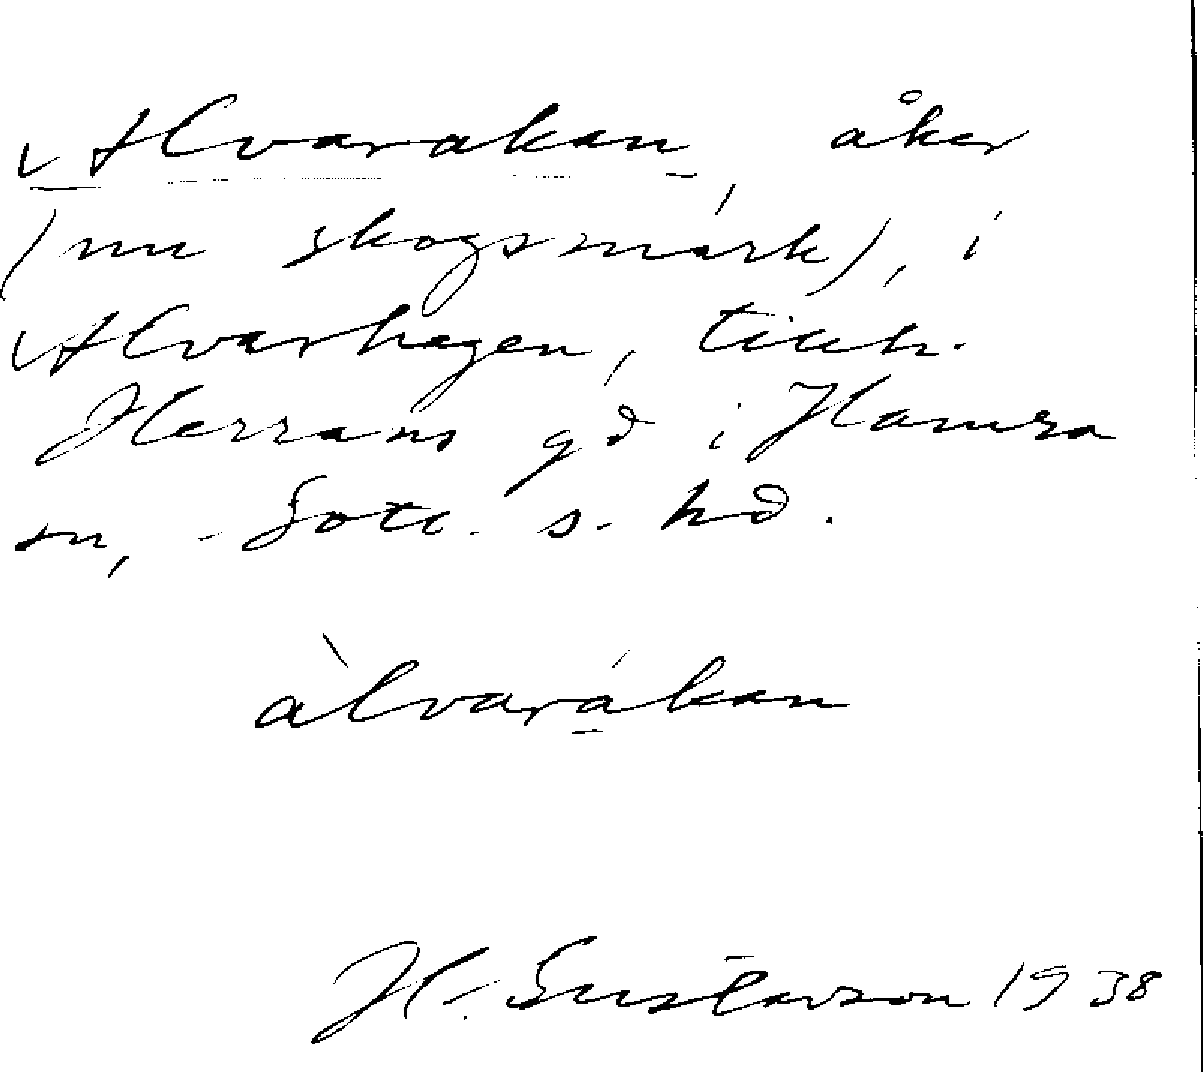 Alvarakan, åker
(nu skogsmark), i
Alvarhagen, tillh.
Herrans gd i Hamra
sn, Gotl. s. hd.
àlvarákan
H. Gustavson 1938